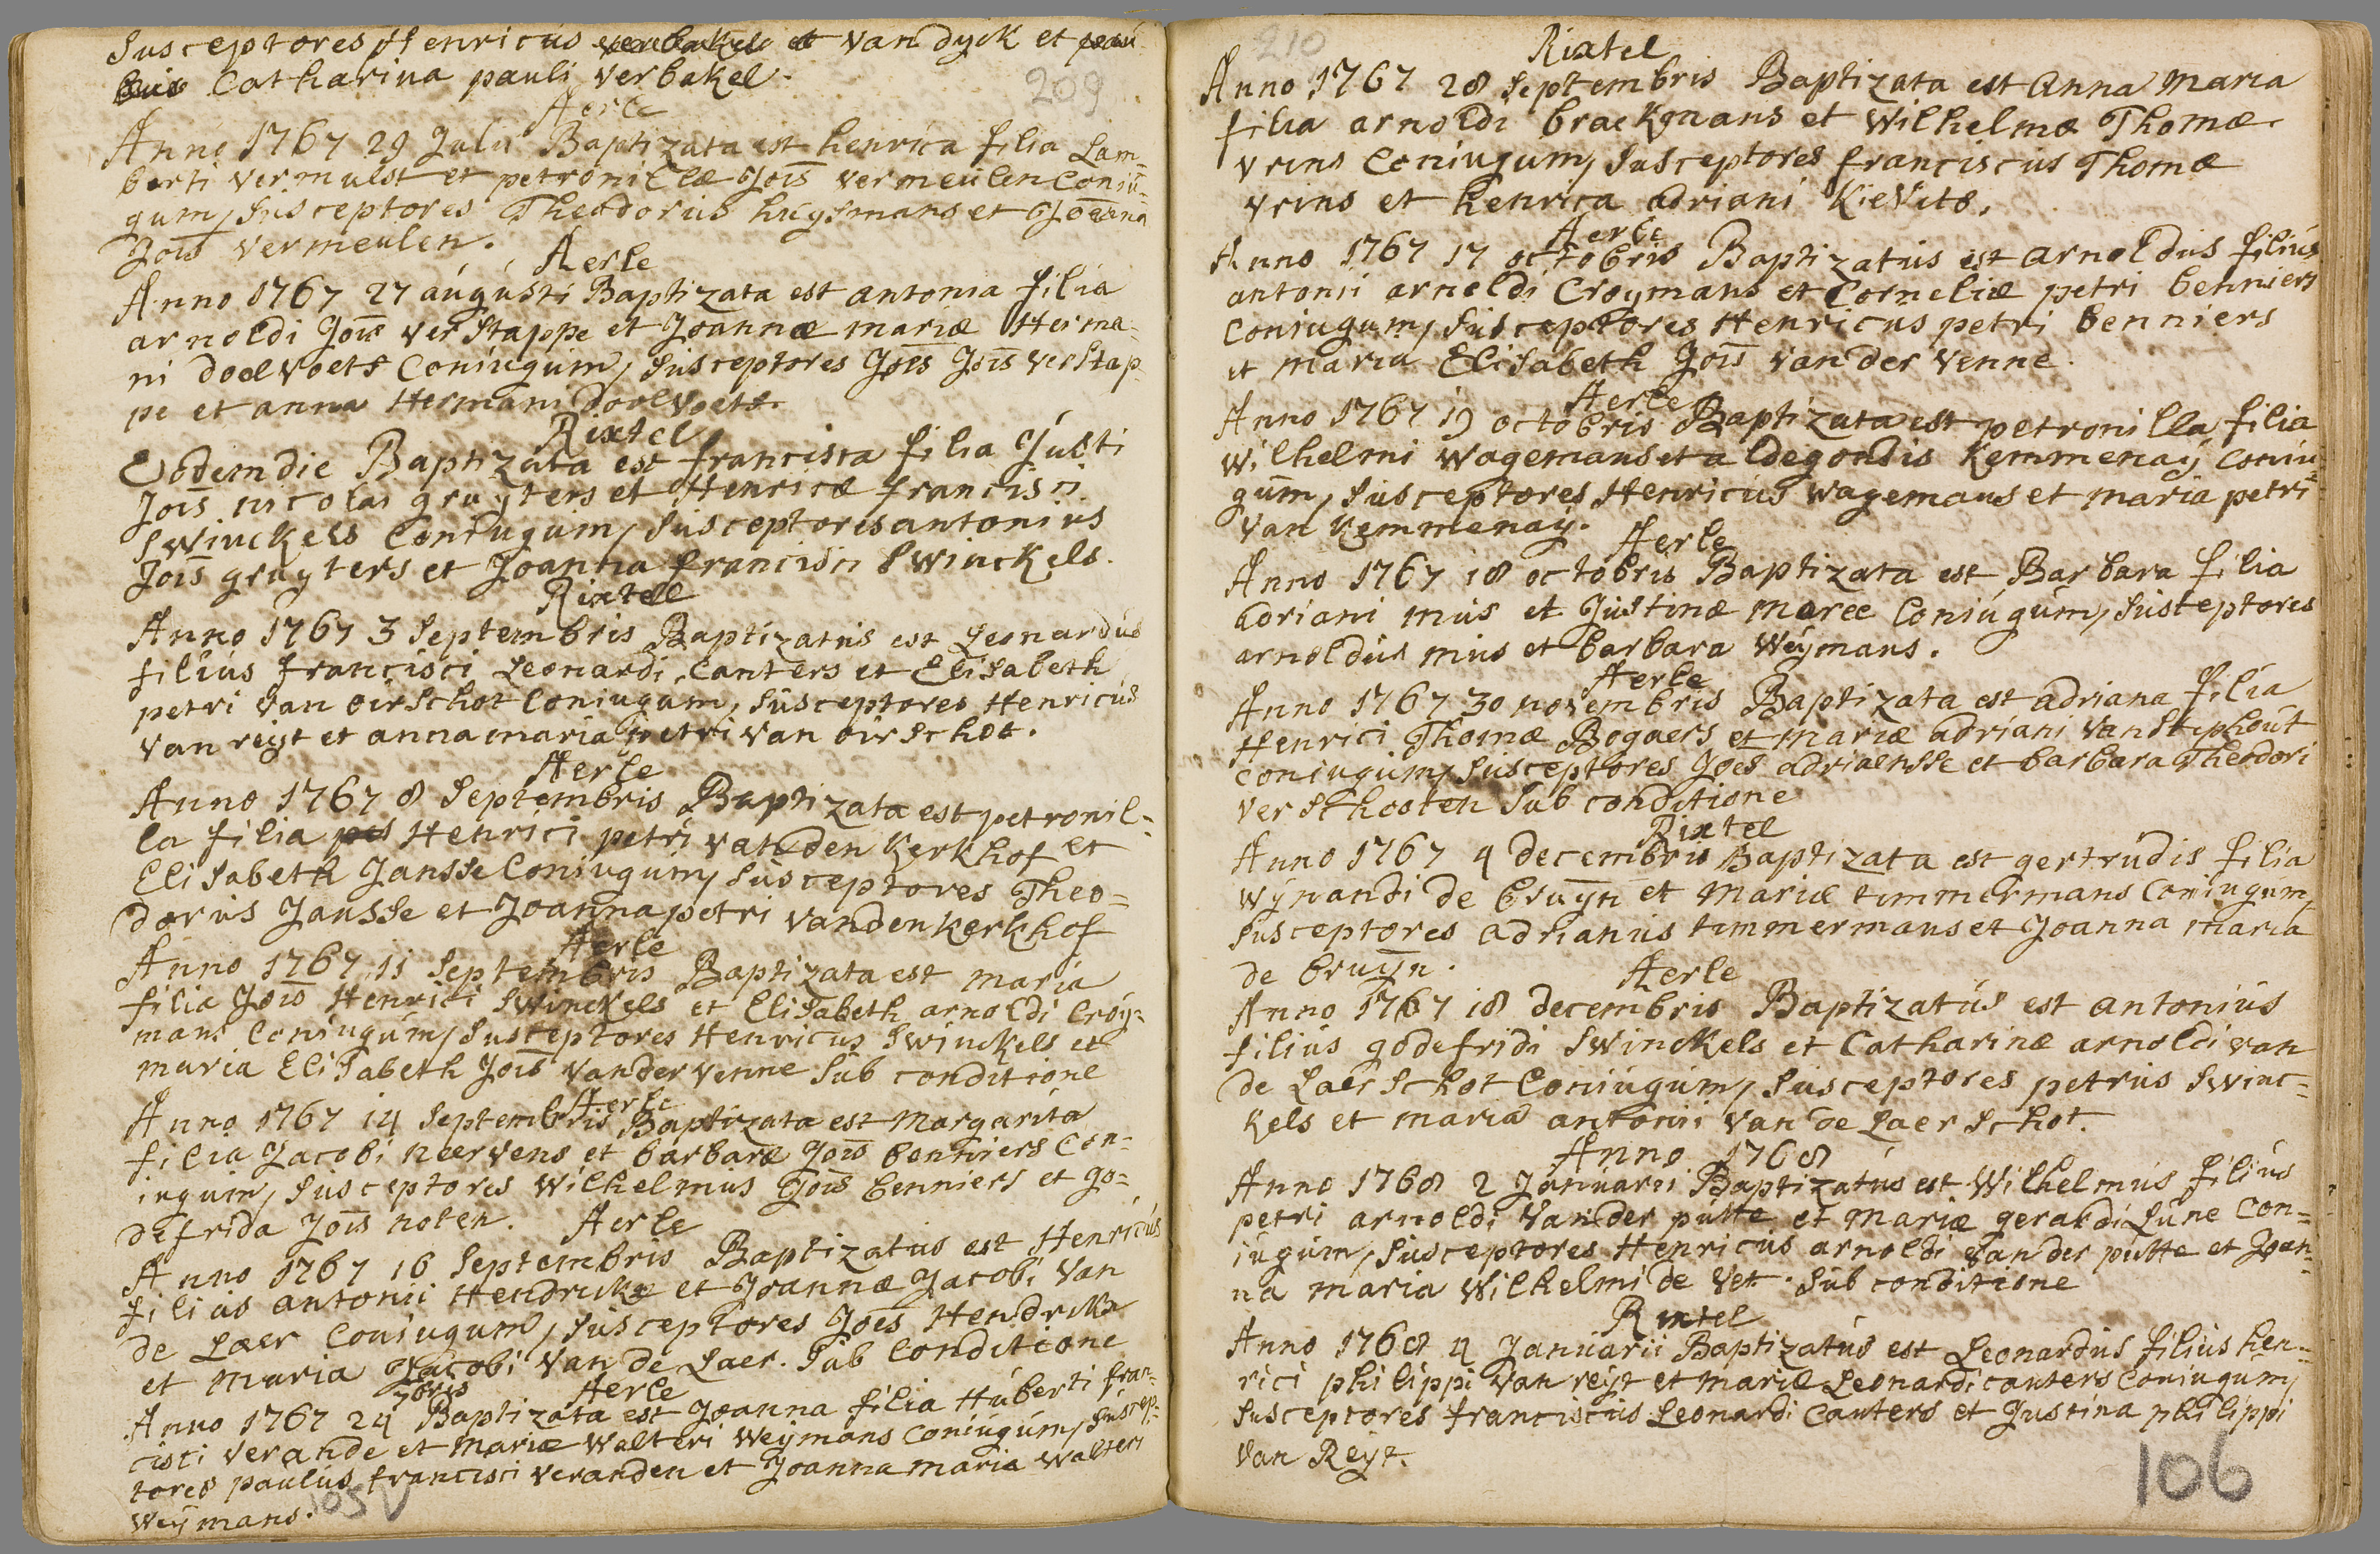 Susceptores Henricus van dyck et
Catharina pauli verbakel.
209
Aerle
Anno 1767 29 Julii Baptizata est henrica filia Lam-
berti vermulst et petronillæ Jois vermeulen Coniu-
gum, Susceptores Theodorus huysmans et Joanna
Jois vermeulen.
Aerle
Anno 1767 27 augusti Baptizata est antonia filia
arnoldi Jois verstappe et Joannæ mariæ Herma-
ni doelvoets Coniugum, Susceptores Joes Jois verstap-
pe et anna Hermani doelvoets.
Rixtel
Eodem die Baptizata est francisca filia Justi
Jois nicolai gruyters et Henricæ francisci
Swinckels Coniugum, Susceptores antonius
Jois gruyters et Joanna francisci Swinckels.
Rixtel
Anno 1767 3 Septembris Baptizatus est Leonardus
filius francisci Leonardi Canters et Elisabeth
petri van oirschot Coniugum, Susceptores Henricus
van reyt et anna maria petri van oirschot.
Aerle
Anno 1767 8 Septembris Baptizata est petronil-
la filia Henrici petri vanden Kerkhof et
Elisabeth Jansse Coniugum, Susceptores Theo=
dorus Jansse et Joanna petri vanden kerkhof
Aerle
Anno 1767 11 Septembris Baptizata est maria
filia Jois Henrici Swinckels et Elisabeth arnoldi Croy=
mans Coniugum, Susceptores Henricus Swinckels et
maria Elisabeth Jois vander venne Sub conditione
Aerle
Anno 1767 14 Septembris Baptizata est Margarita
filia Jacobi neervens et barbaræ Jois benniers Con=
iugum, Susceptores Wilhelmus Jois benniers et go=
defrida Jois nolen.
Aerle
Anno 1767 16 Septembris Baptizatus est Henricus
filius antonii Hendrickx et Joannæ Jacobi van
de Laer Coniugum, Susceptores Joes Hendrickx
et Maria Jacobi van de Laer. Sub Conditione
Aerle
Anno 1767 24 7bris Baptizata est Joanna filia Huberti fran-
cisci verande et Mariæ Walteri Weymans Coniugum, Suscep-
tores paulus francisci veranden et Joanna maria Walteri
Weymans.
105 V
210
Rixtel
Anno 1767 28 Septembris Baptizata est Anna Maria
filia arnoldi brackmans et Wilhelmæ Thomæ
vrins Coniugum, Susceptores franciscus Thomæ
vrins et henrica adriani Kievits.
Aerle
Anno 1767 17 octobris Baptizatus est arnoldus filius
antonii arnoldi Croymans et Corneliæ petri benniers
Coniugum, Susceptores Henricus petri benniers
et maria Elisabeth Jois van der venne.
Aerle
Anno 1767 19 octobris Baptizata est petronilla filia
Wilhelmi Wagemans et aldegondis Kemmenay Coniu-
gum, Susceptores Henricus Wagemans et maria petri
van Kemmenay.
Aerle
Anno 1767 18 octobris Baptizata est Barbara filia
adriani mus et Justinæ maree Coniugum, Susceptores
arnoldus mus et barbara Weymans.
Aerle
Anno 1767 30 novembris Baptizata est adriana filia
Henrici Thomæ Bogaers et Mariæ adriani van Stiphout
Coniugum, Susceptores Joes adriaensse et barbara Theodori
verschooten Sub conditione
Rixtel
Anno 1767 4 decembris Baptizata est gertrudis filia
wynandi de bruyn et Mariæ timmermans Coniugum,
Susceptores adrianus timmermans et Joanna maria
de bruyn.
Aerle
Anno 1767 18 decembris Baptizatus est antonius
filius godefridi Swinckels et Catharinæ arnoldi van
de Laerschot Coniugum, Susceptores petrus Swinc=
kels et maria antonii van de Laerschot.
Anno 1768
Anno 1768 2 Januarii Baptizatus est Wilhelmus filius
petri arnoldi vander putte et Mariæ gerardi Lune Con=
iugum, Susceptores Henricus arnoldi vander putte et Joan-
na maria Wilhelmi de vet. Sub conditione
Rixtel
Anno 1768 4 Januarii Baptizatus est Leonardus filius hen-
rici philippi van reyt et Mariæ Leonardi canters Coniugum,
Susceptores franciscus Leonardi Canters et Justina philippi
van Reyt.
106